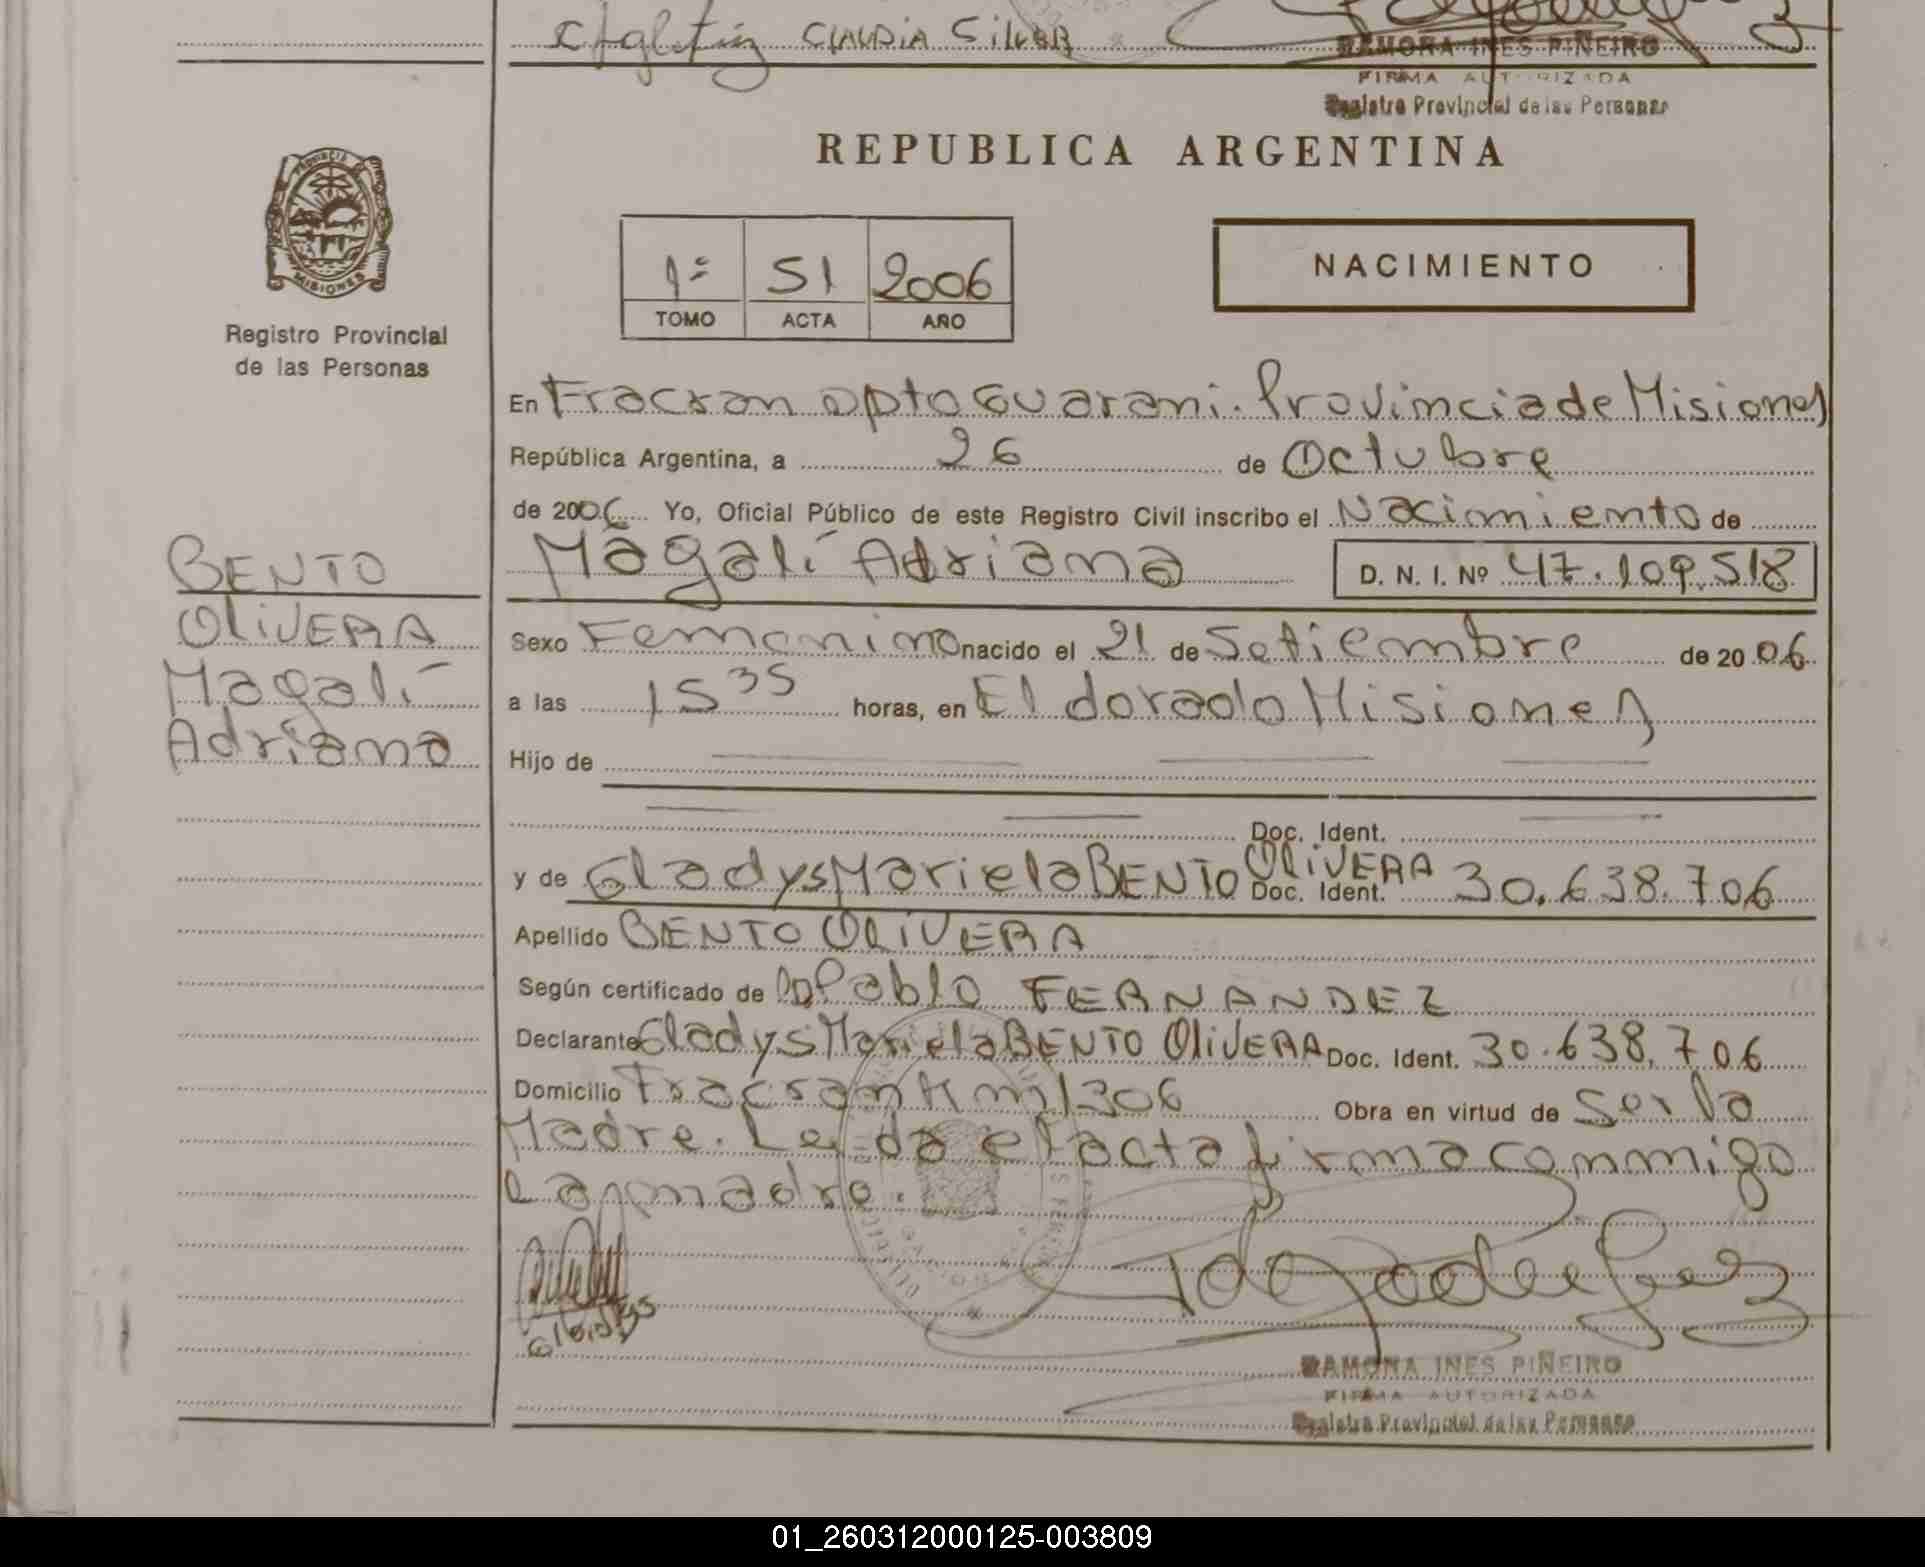 CLAUDIA SILVER
RAMONA INES PIÑEIRO
FIRMA AUTORIZADA
Registro Provincial de las Personas
REPUBLICA ARGENTINA
PROVINCIA
MISIONES
Registro Provincial
de las Personas
1º 51 2006
TOMO ACTA AÑO
NACIMIENTO
En Fracran Dpto Guarani. Provincia de Misiones
República Argentina, a 26 de Octubre
de 2006 Yo, Oficial Público de este Registro Civil inscribo el Nacimiento de
Magalí Adriana D. N. I. Nº 47.109.518
BENTO
OLIVERA
Magalí
Adriana
Sexo Femenino nacido el 21 de Setiembre de 2006
a las 15 35 horas, en Eldorado Misiones
Hijo de
Doc. Ident.
y de Gladys Mariela BENTO OLIVERA Doc. Ident. 30.638.706
Apellido BENTO OLIVERA
Según certificado de Pablo FERNANDEZ
Declarante Gladys Mariela BENTO OLIVERA Doc. Ident. 30.638.706
Domicilio Fracran Km 1306 Obra en virtud de Ser la
Madre. Leida el acta firma conmigo
la madre.
RAMONA INES PIÑEIRO
FIRMA AUTORIZADA
Registro Provincial de las Personas
01_260312000125-003809